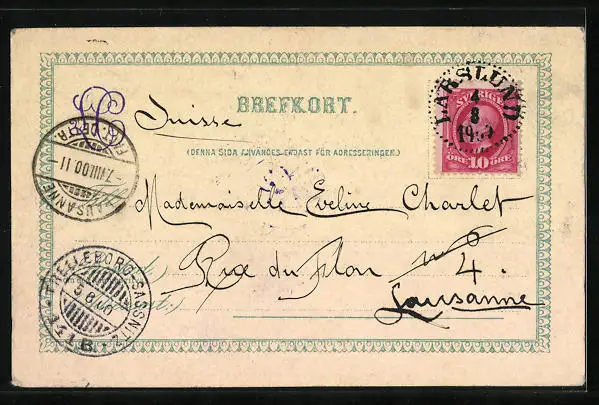 Suisse
BREFKORT.
(DENNA SIDA ANVÄNDES ENDAST FÖR ADRESSERINGEN.)
LARSLUND
4
8
1900
SVERIGE
ÖRE 10 ÖRE
LAUSANNE
-7.VIII.00 11
Mademoiselle Eveline Charlet
Rue du
4.
Lausanne
TRELLEBORG-SASSNITZ
5 8 00